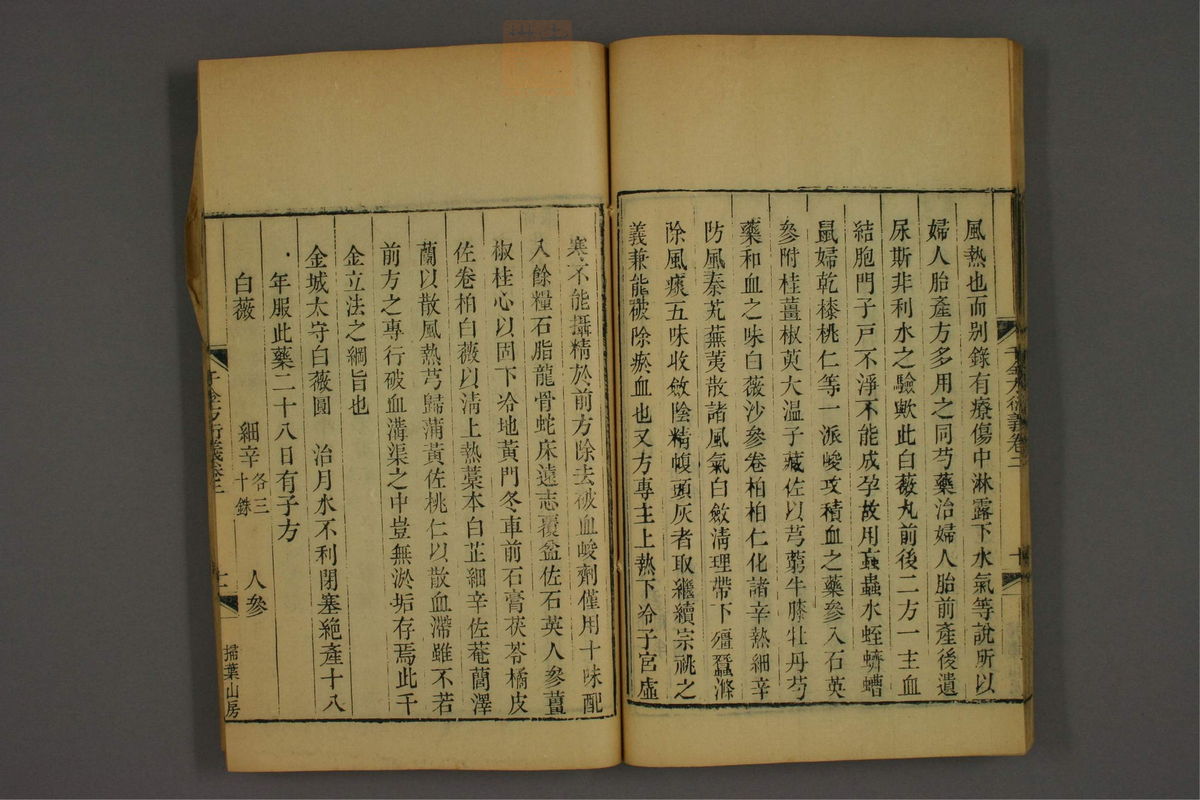 風熱也而别錄有療傷中淋露下水氣等說所以
婦人胎產方多用之同芍藥治婦人胎前產後遺
尿斯非利水之驗歟此白薇丸前後二方一主血
結胞門子戸不淨不能成孕故用䖟蟲水蛭蠐螬
鼠婦乾漆桃仁等一派峻攻積血之藥參入石英
參附桂薑椒萸大温子藏佐以芎藭牛膝牡丹芍
藥和血之味白薇沙參卷柏柏仁化諸辛熱細辛
防風秦艽蕪荑散諸風氣白斂清理帶下殭蠶滌
除風痰五味收斂陰精幞頭灰者取繼續宗祧之
義兼能祓除瘀血也又方專主上熱下冷子宮虛
寒不能攝精於前方除去破血峻劑僅用十味配
入餘糧石脂龍骨蛇床遠志覆盆佐石英人參薑
椒桂心以固下冷地黃門冬車前石膏茯苓橘皮
佐卷柏白薇以淸上熱藁本白芷細辛佐菴䕡澤
蘭以散風熱芎歸蒲黃佐桃仁以散血滯雖不若
前方之專行破血溝渠之中豈無淤垢存焉此千
金立法之綱旨也
金城太守白薇圓 治月水不利閉塞絶產十八
年服此藥二十八日有子方
白薇 細辛各三十銖 人參
千金方衍義卷三 十一
掃葉山房